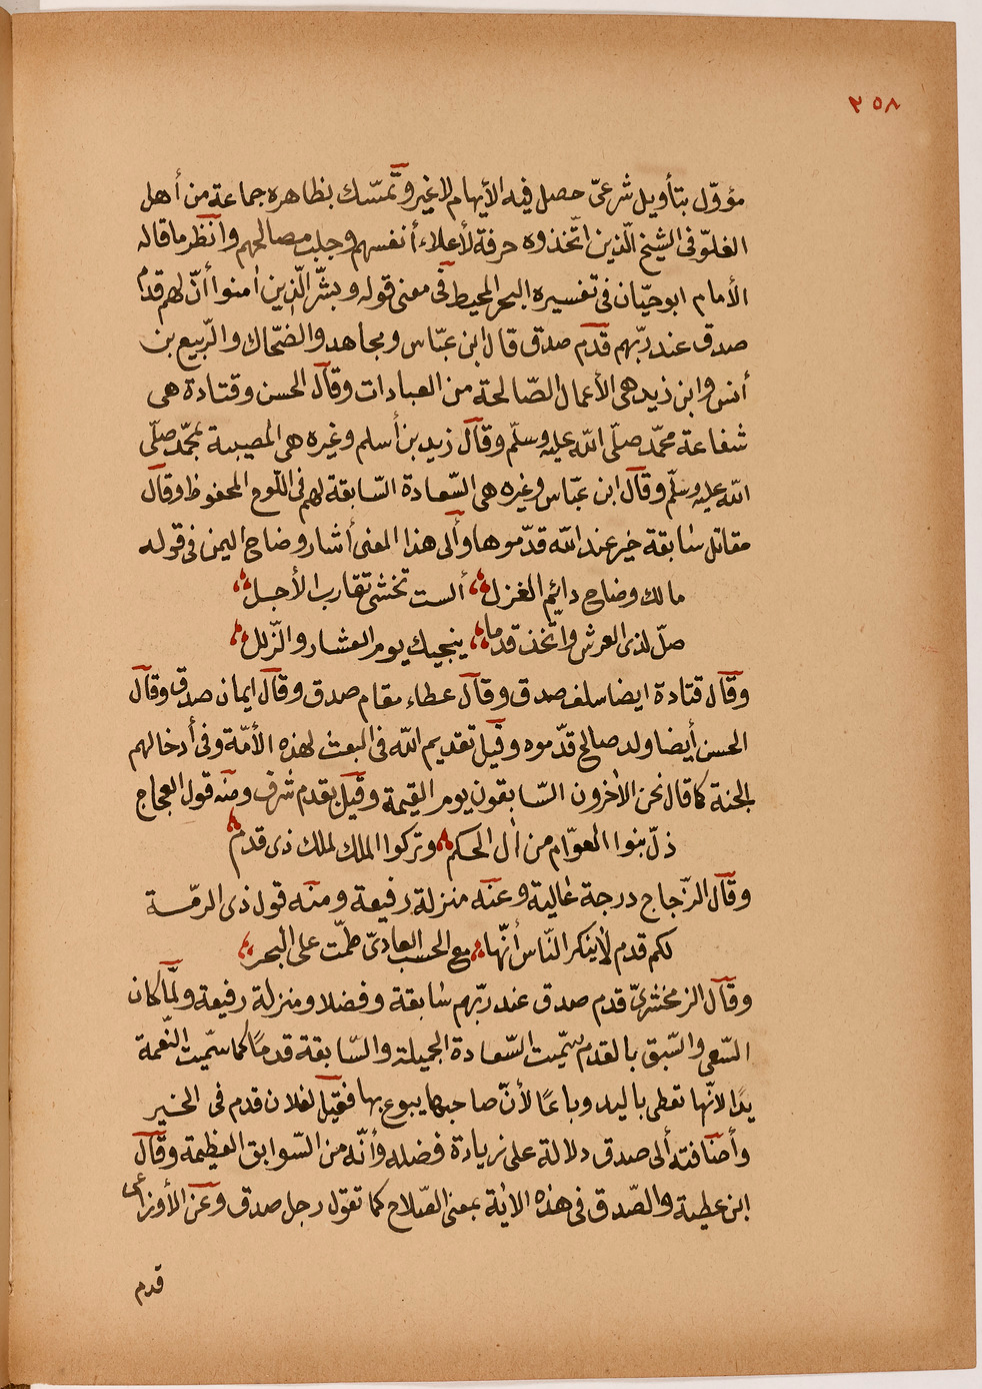 ٣٥٨
مؤوّل بتأويل شرعىّ حصل فيه الأيهام لا غير وتمسّك بظاهره جماعة من أهل
الغلوّ فى الشيخ الّذين اتّخذوه حرفة لأعلاء أنفسهم وجلب مصالحهم وأنظر ما قاله
الأمام ابو حيّان فى تفسيره البحر المحيط فى معنى قوله وبشّر الّذين اٰمنوا أنّ لهم قدم
صدق عند ربّهم قدم صدق قال ابن عبّاس ومجاهد والضّحاك والرّبيع بن
أنس وابن زيد هى الأعمال الصّالحة من العبادات وقال الحسن وقتادة هى
شفاعة محمّد صلّى اللّه عليه وسلّم وقال زيد بن أسلم وغيره هى المصيبة بمحمّد صلّى
اللّه عليه وسلّم وقال ابن عبّاس وغيره هى السّعادة السّابقة لهم فى اللّوح المحفوظ وقال
مقاتل سابقة خير عند اللّه قدّموها وألى هذا المعنى أشار وضاح اليمن فى قوله
مالك وضاح دائم الغزل ألست تخشى تقارب الأجل
صلّ لذى العرش واتخذ قدما ينجيك يوم العشار والزّلل
وقال قتادة ايضا سلف صدق وقال عطاء مقام صدق وقال ايمان صدق وقال
الحسن أيضا ولد صالح قدّموه وقيل تقديم اللّه فى البعث لهذه الأمّة وفى أدخالهم
الجنة كما قال نحن الاٰخرون السّابقون يوم القيمة وقيل تقدم شرف ومنه قول العجاج
ذلّ بنوا العوّام من اٰل الحكم وتركوا الملك لملك ذى قدم
وقال الزّجاج درجة عالية وعنه منزلة رفيعة ومنه قول ذى الرمّة
لكم قدم لا ينكر النّاس أنّها مع الحسب العادىّ طمّت على البحر
وقال الزمخشرىّ قدم صدق عند ربّهم سابقة وفضلا ومنزلة رفيعة ولمّا كان
السّعى والسّبق بالقدم سمّيت السّعادة الجميلة والسّابقة قدمًا كما سمّيت النّعمة
يدًا لأنّها تعطى باليد وباعًا لأنّ صاحبها يبوع بها فقيل لفلان قدم فى الخير
وأضافته ألى صدق دلالة على زيادة فضله وأنّه من السّوابق العظيمة وقال
ابن عطية والصّدق فى هذه الاٰية بمعنى الصّلاح كما تقول رجل صدق وعن الأوزاعى
قدم